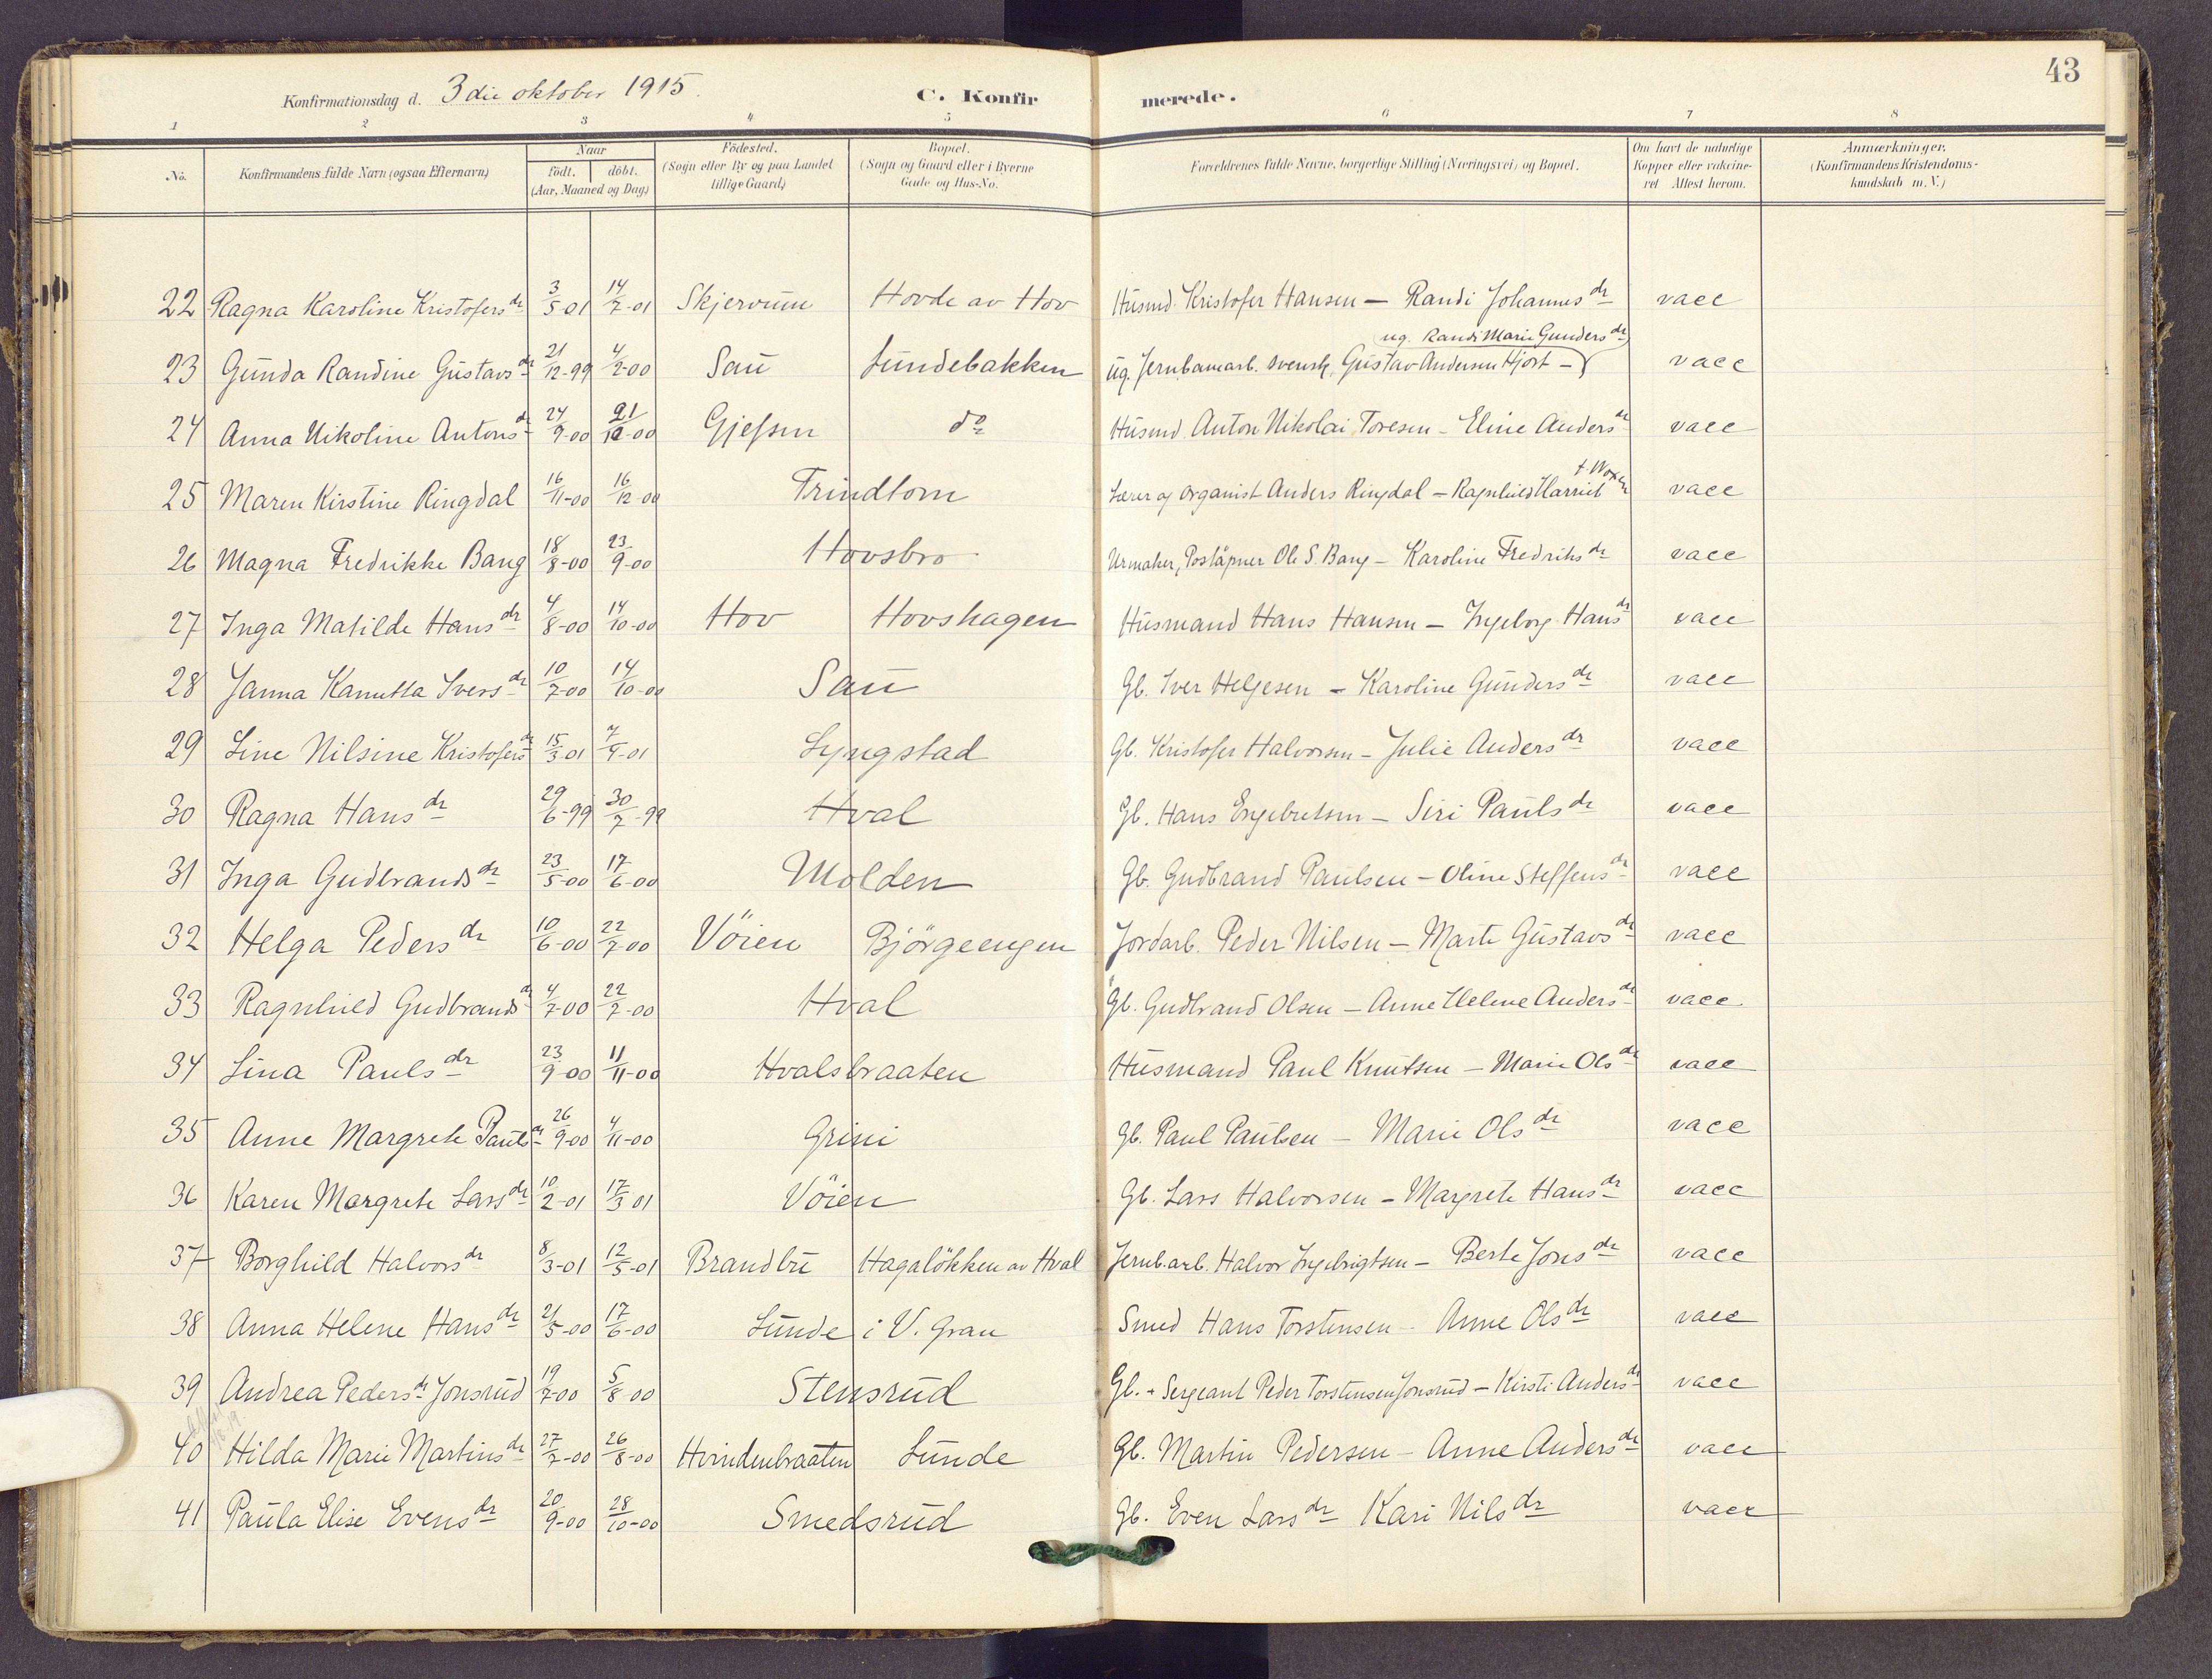 43
Konfirmationsdag d. 3die oktober 1915.
C. Konfirmerede.
1 2 3 4 5 6 7 8
No.
Konfirmandens fulde Navn (ogsaa Efternavn)
Naar
födt. döbt.
(Aar, Maaned og Dag.)
Födested.
(Sogn eller By og paa Landet
tillige Gaard)
Bopæl.
(Sogn og Gaard eller i Byerne
Gade og Hus-No.
Forældrenes fulde Navne, borgerlige Stilling (Næringsvei) og Bopæl.
Om havt de naturlige
Kopper eller vakcine-
ret Attest herom.
Anmærkninger.
(Konfirmandens Kristendoms-
kundskab m. V.)
22 Ragna Karoline Kristofersdr 3/5-01 14/7-01 Skjervum Hovde av Hov Husmd. Kristofer Hansen – Randi Johannesdr vacc
ug. Randi Marie Gundersdr
23 Gunda Randine Gustavsdr 21/12-99 4/2-00 Sau Lundebakken ug. Jernbanearb. svensk, Gustav Andersen Hjort – vacc
24 Anna Nikoline Antonsdr 24/9-00 21/10-00 Gjefsen do Husmd. Anton Nikolai Toresen – Eline Andersdr vacc
25 Maren Kirstine Ringdal 16/11-00 16/12-00 Trindtorn Lærer og organist Anders Ringdal – Ragnhild Harriet f. Woxen vacc
26 Magna Fredrikke Bang 18/8-00 23/9-00 Hovsbro Urmaker, Poståpner Ole S. Bang – Karoline Fredriksdr vacc
27 Inga Matilde Hansdr 4/8-00 14/10-00 Hov Hovshagen Husmand Hans Hansen – Ingeborg Hansdr vacc
28 Janna Kanutta Iversdr 10/7-00 14/10-00 Sau Gb. Iver Helgesen – Karoline Gundersdr vacc
29 Line Nilsine Kristofersdr 15/3-01 7/4-01 Lyngstad Gb. Kristofer Halvorsen – Julie Andersdr vacc
30 Ragna Hansdr 29/6-99 30/7-99 Hval Gb. Hans Engebretsen – Siri Paulsdr vacc
31 Inga Gudbrandsdr 23/5-00 17/6-00 Molden Gb. Gudbrand Paulsen – Oline Steffensdr vacc
32 Helga Pedersdr 10/6-00 22/7-00 Vöien Björgeengen Jordarb. Peder Nilsen – Marte Gustavsdr vacc
33 Ragnhild Gudbrandsdr 4/7-00 22/7-00 Hval Gb. Gudbrand Olsen – Anne Helene Andersdr vacc
34 Lina Paulsdr 23/9-00 11/11-00 Hvalsbraaten Husmand Paul Knutsen – Marie Olsdr vacc
35 Anne Margrete Paulsdr 26/9-00 4/11-00 Grini Gb. Paul Paulsen – Marie Olsdr vacc
36 Karen Margrete Larsdr 10/2-01 17/3 01 Vöien Gb. Lars Halvorsen – Margrete Hansdr vacc
37 Borghild Halvorsdr 8/3-01 12/5-01 Brandbu Hagalökken av Hval Jernb.arb. Halvor Ingebrigtsen – Berte Jonsdr vacc
38 Anna Helene Hansdr 21/5-00 17/6-00 Lunde i V. Gran Smed Hans Torstensen – Anne Olsdr vacc
39 Andrea Pedersdr Jonsrud 19/7-00 5/8-00 Stensrud Gb. + Sergeant Peder Torstensen Jonsrud – Kirsti Andersdr vacc
40 Hilda Marie Martinsdr 27/7-00 26/8-00 Hvindenbraaten Lunde Gb. Martin Pedersen – Anne Andersdr vacc
41 Paula Elise Evensdr 20/9-00 28/10-00 Smedsrud Gb. Even Larsdr Kari Nilsdr vacc